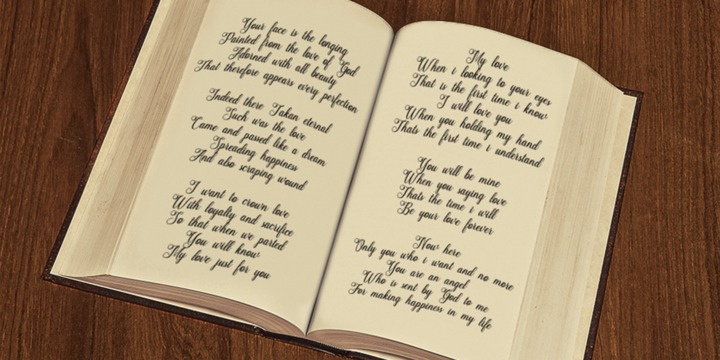 Your face is the longing
Painted from the love of God
Adorned with all beauty
That therefore appears every perfection
Indeed there Takan eternal
Such was the love
Came and passed like a dream
Spreading happiness
And also scraping wound
I want to crown love
With loyalty and sacrifice
So that when we parted
You will know
My love just for you
My love
When i looking to your eyes
That is the first time i know
I will love you
When you holding my hand
Thats the first time i understand
You will be mine
When you saying love
Thats the time i will
Be your love forever
Now here
Only you who i want and no more
You are an angel
Who is sent by God to me
For making happiness in my life